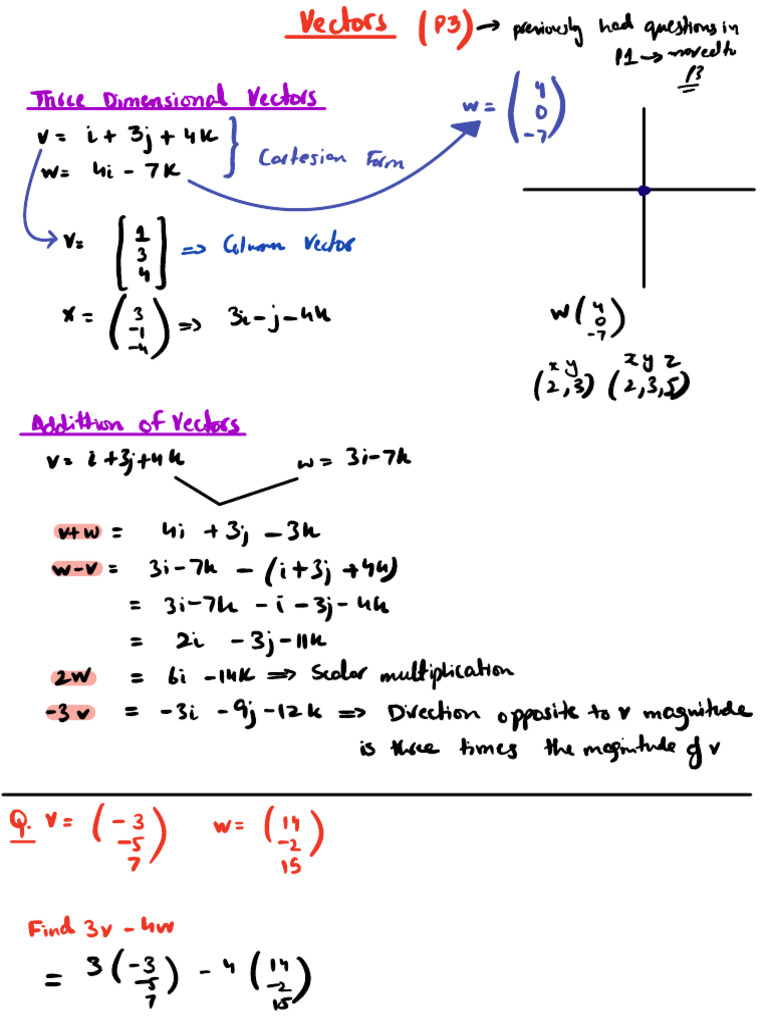 Vectors (P3) → previously had questions in
P1 → moved to
P3
Three Dimensional Vectors
v = i + 3j + 4k
w = 4i - 7k
} Cartesian Form
w = (4
0
-7)
v = [1
3
4] => Column Vector
x = (3
-1
-4) => 3i - j - 4k
w (4
0
-7)
x y x y z
(2,3) (2,3,5)
Addittion of Vectors
v = i + 3j + 4k w = 3i - 7k
v+w = 4i + 3j - 3k
w-v = 3i - 7k - (i + 3j + 4k)
= 3i - 7k - i - 3j - 4k
= 2i - 3j - 11k
2w = 6i - 14k => Scalar multiplication
-3v = -3i - 9j - 12k => Direction opposite to v magnitude
is three times the magintude of v
Q. v = (-3
-5
7) w = (14
-2
15)
Find 3v - 4w
= 3 (-3
-5
7) - 4 (14
-2
15)